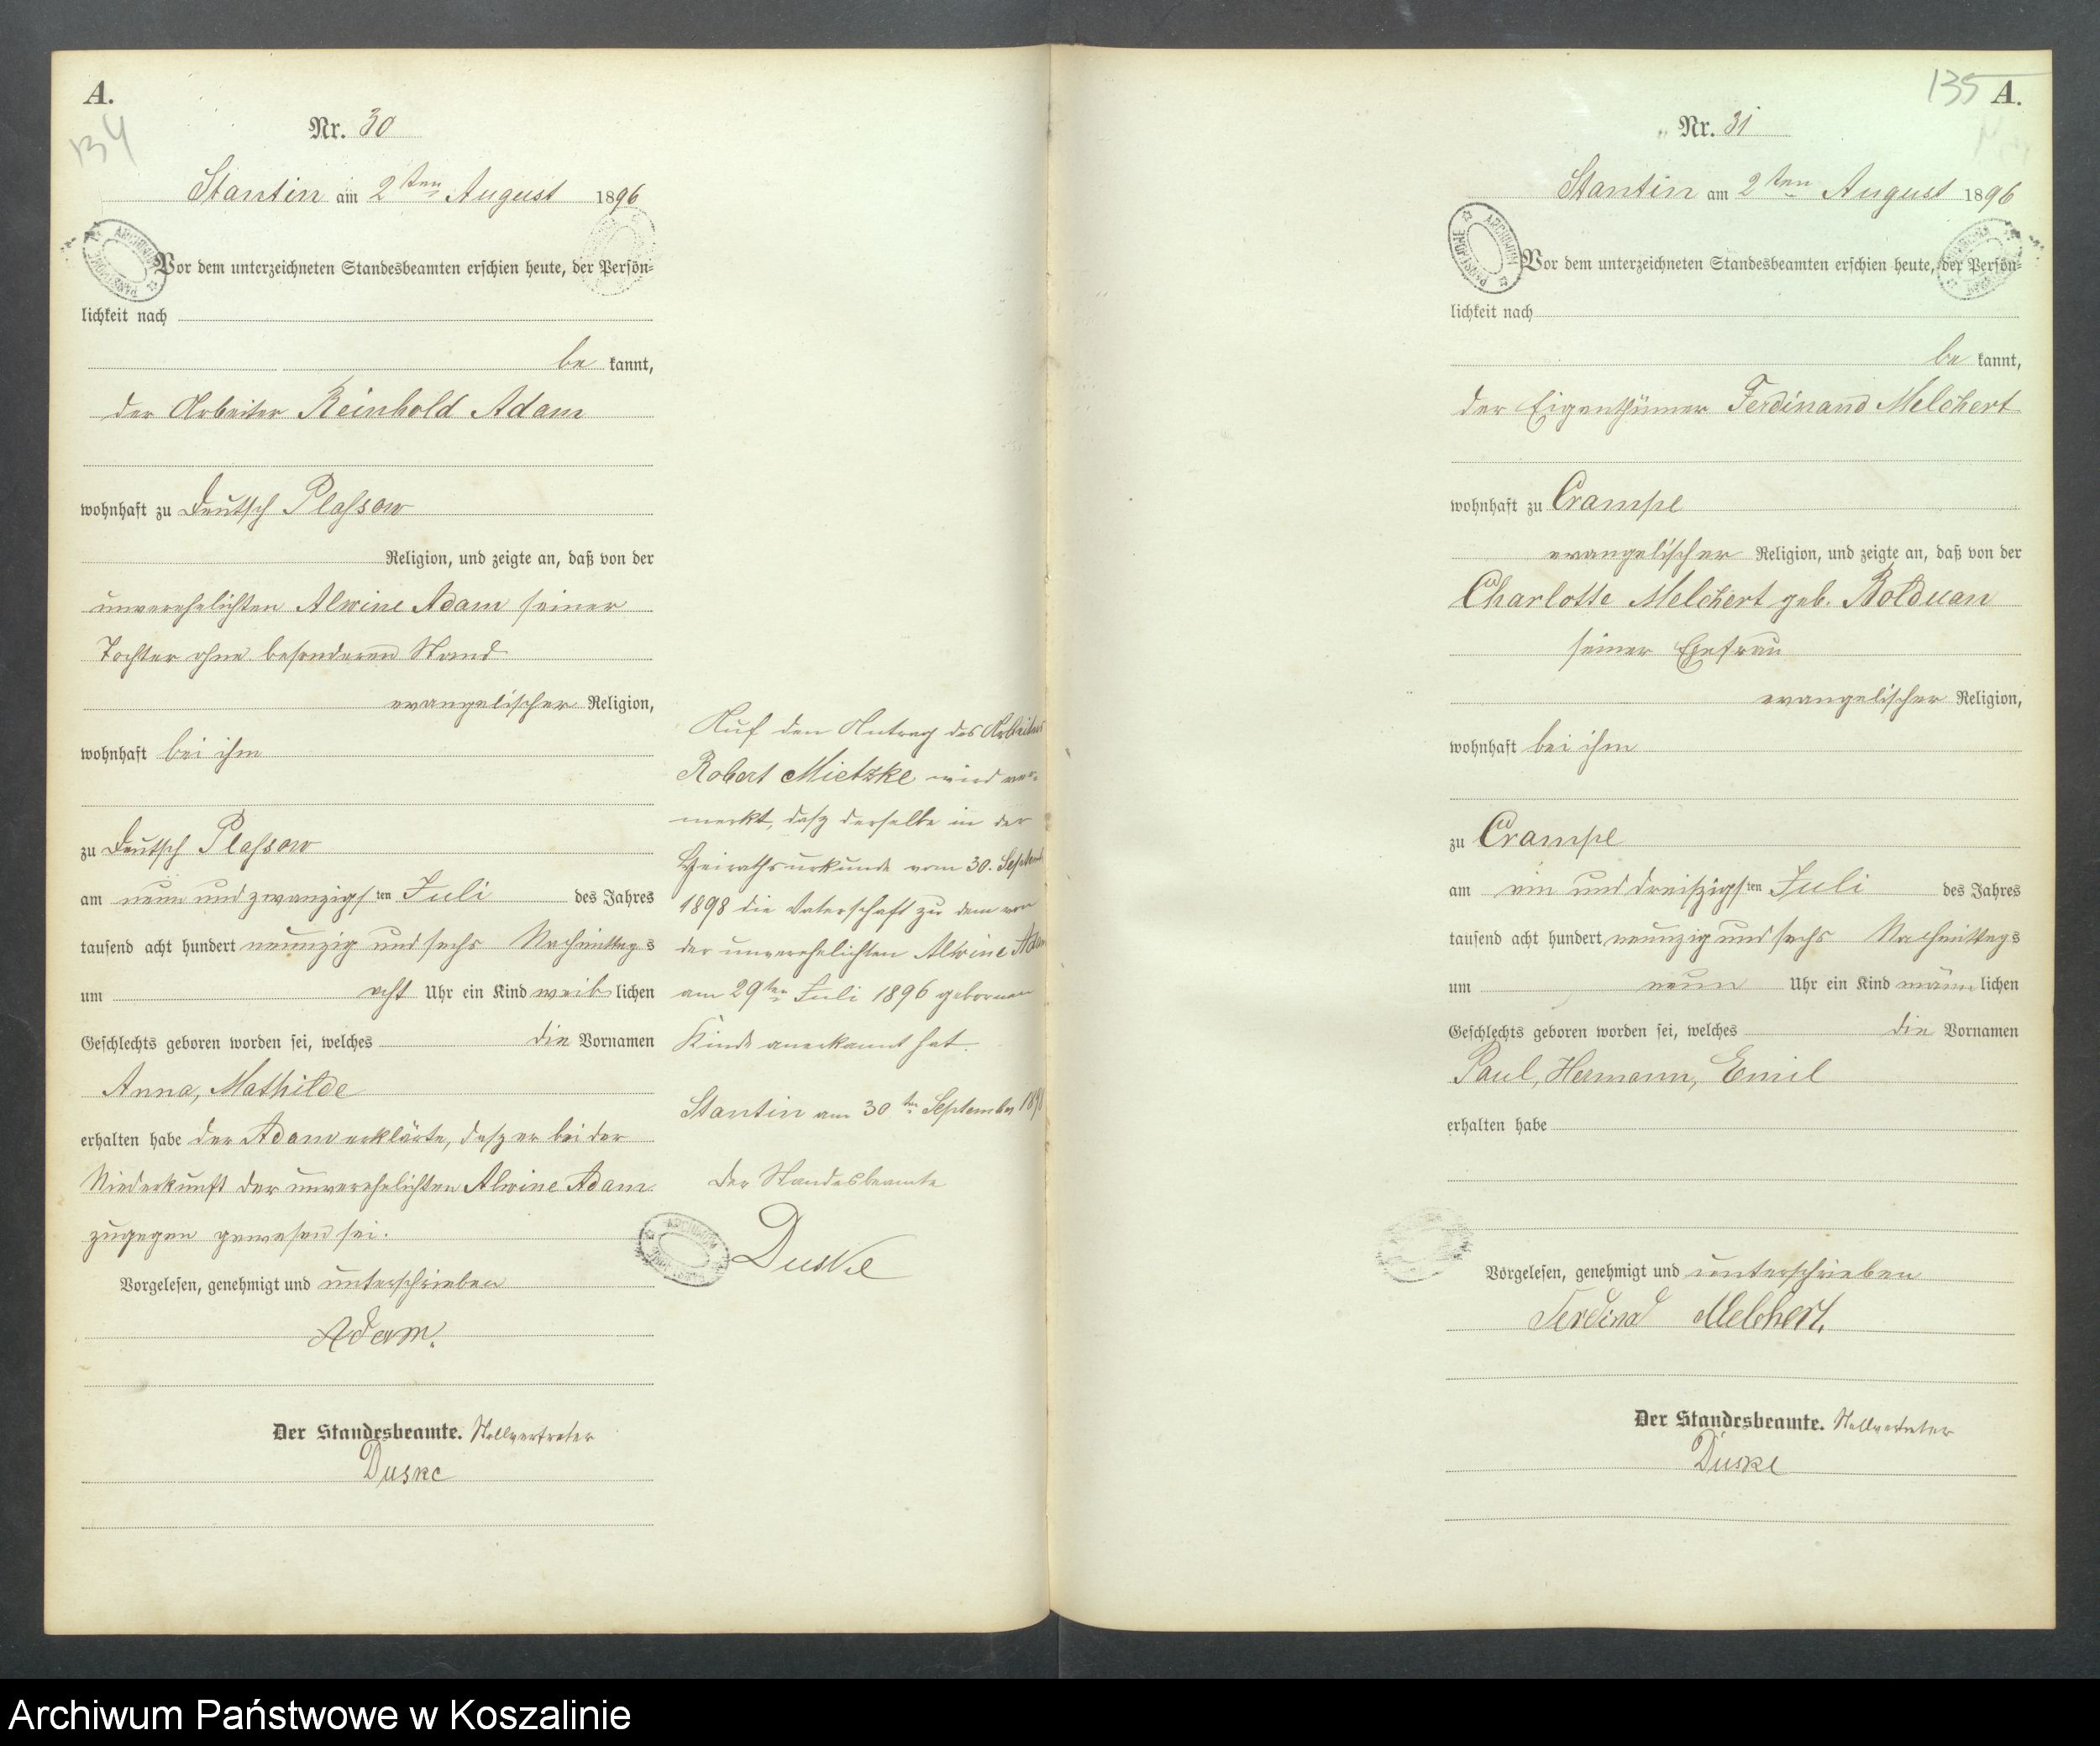 A.
134
Nr. 30
Stantin am 2ten August 1896
Vor dem unterzeichneten Standesbeamten erschien heute, der Persön-
lichkeit nach
be kannt,
der Arbeiter Reinhold Adam
wohnhaft zu Deutsch Plassow
Religion, und zeigte an, daß von der
unverehelichten Alwine Adam seiner
Tochter ohne besonderen Stand
evangelischer Religion,
wohnhaft bei ihm
zu Deutsch Plassow
am neun und zwanzigsten Juli des Jahres
tausend acht hundert neunzig und sechs Nachmittags
um acht Uhr ein Kind weib lichen
Geschlechts geboren worden sei, welches die Vornamen
Anna, Mathilde
erhalten habe der Adam erklärte, dasz er bei der
Niederkunft der unverehelichten Alwine Adam
zugegen gewesen sei.
Vorgelesen, genehmigt und unterschrieben
Adam.
Der Standesbeamte. Stellvertreter
Duske
Auf den Antrag des Arbeiters
Robert Mietzke wird ver-
merkt, dasz derselbe in der
Heirathsurkunde vom 30. Septemb
1898 die Vaterschaft zu dem von
der unverehelichten Alwine Adam
am 29ten Juli 1896 geborenen
Kinde anerkannt hat.
Stantin am 30ten September 1898
Der Standesbeamte
Duske
135
A.
Nr. 31
Stantin am 2ten August 1896
Vor dem unterzeichneten Standesbeamten erschien heute, der Persön-
lichkeit nach
be kannt,
der Eigenthümer Ferdinand Melchert
wohnhaft zu Crampe
evangelischer Religion, und zeigte an, daß von der
Charlotte Melchert geb. Bolduan
seiner Ehefrau
evangelischer Religion,
wohnhaft bei ihm
zu Crampe
am ein und dreiszigsten Juli des Jahres
tausend acht hundert neunzig und sechs Nachmittags
um neun Uhr ein Kind männ lichen
Geschlechts geboren worden sei, welches die Vornamen
Paul, Hermann, Emil
erhalten habe
Vorgelesen, genehmigt und unterschrieben
Ferdinad Melchert.
Der Standesbeamte. Stellvertreter
Duske
Archiwum Państwowe w Koszalinie